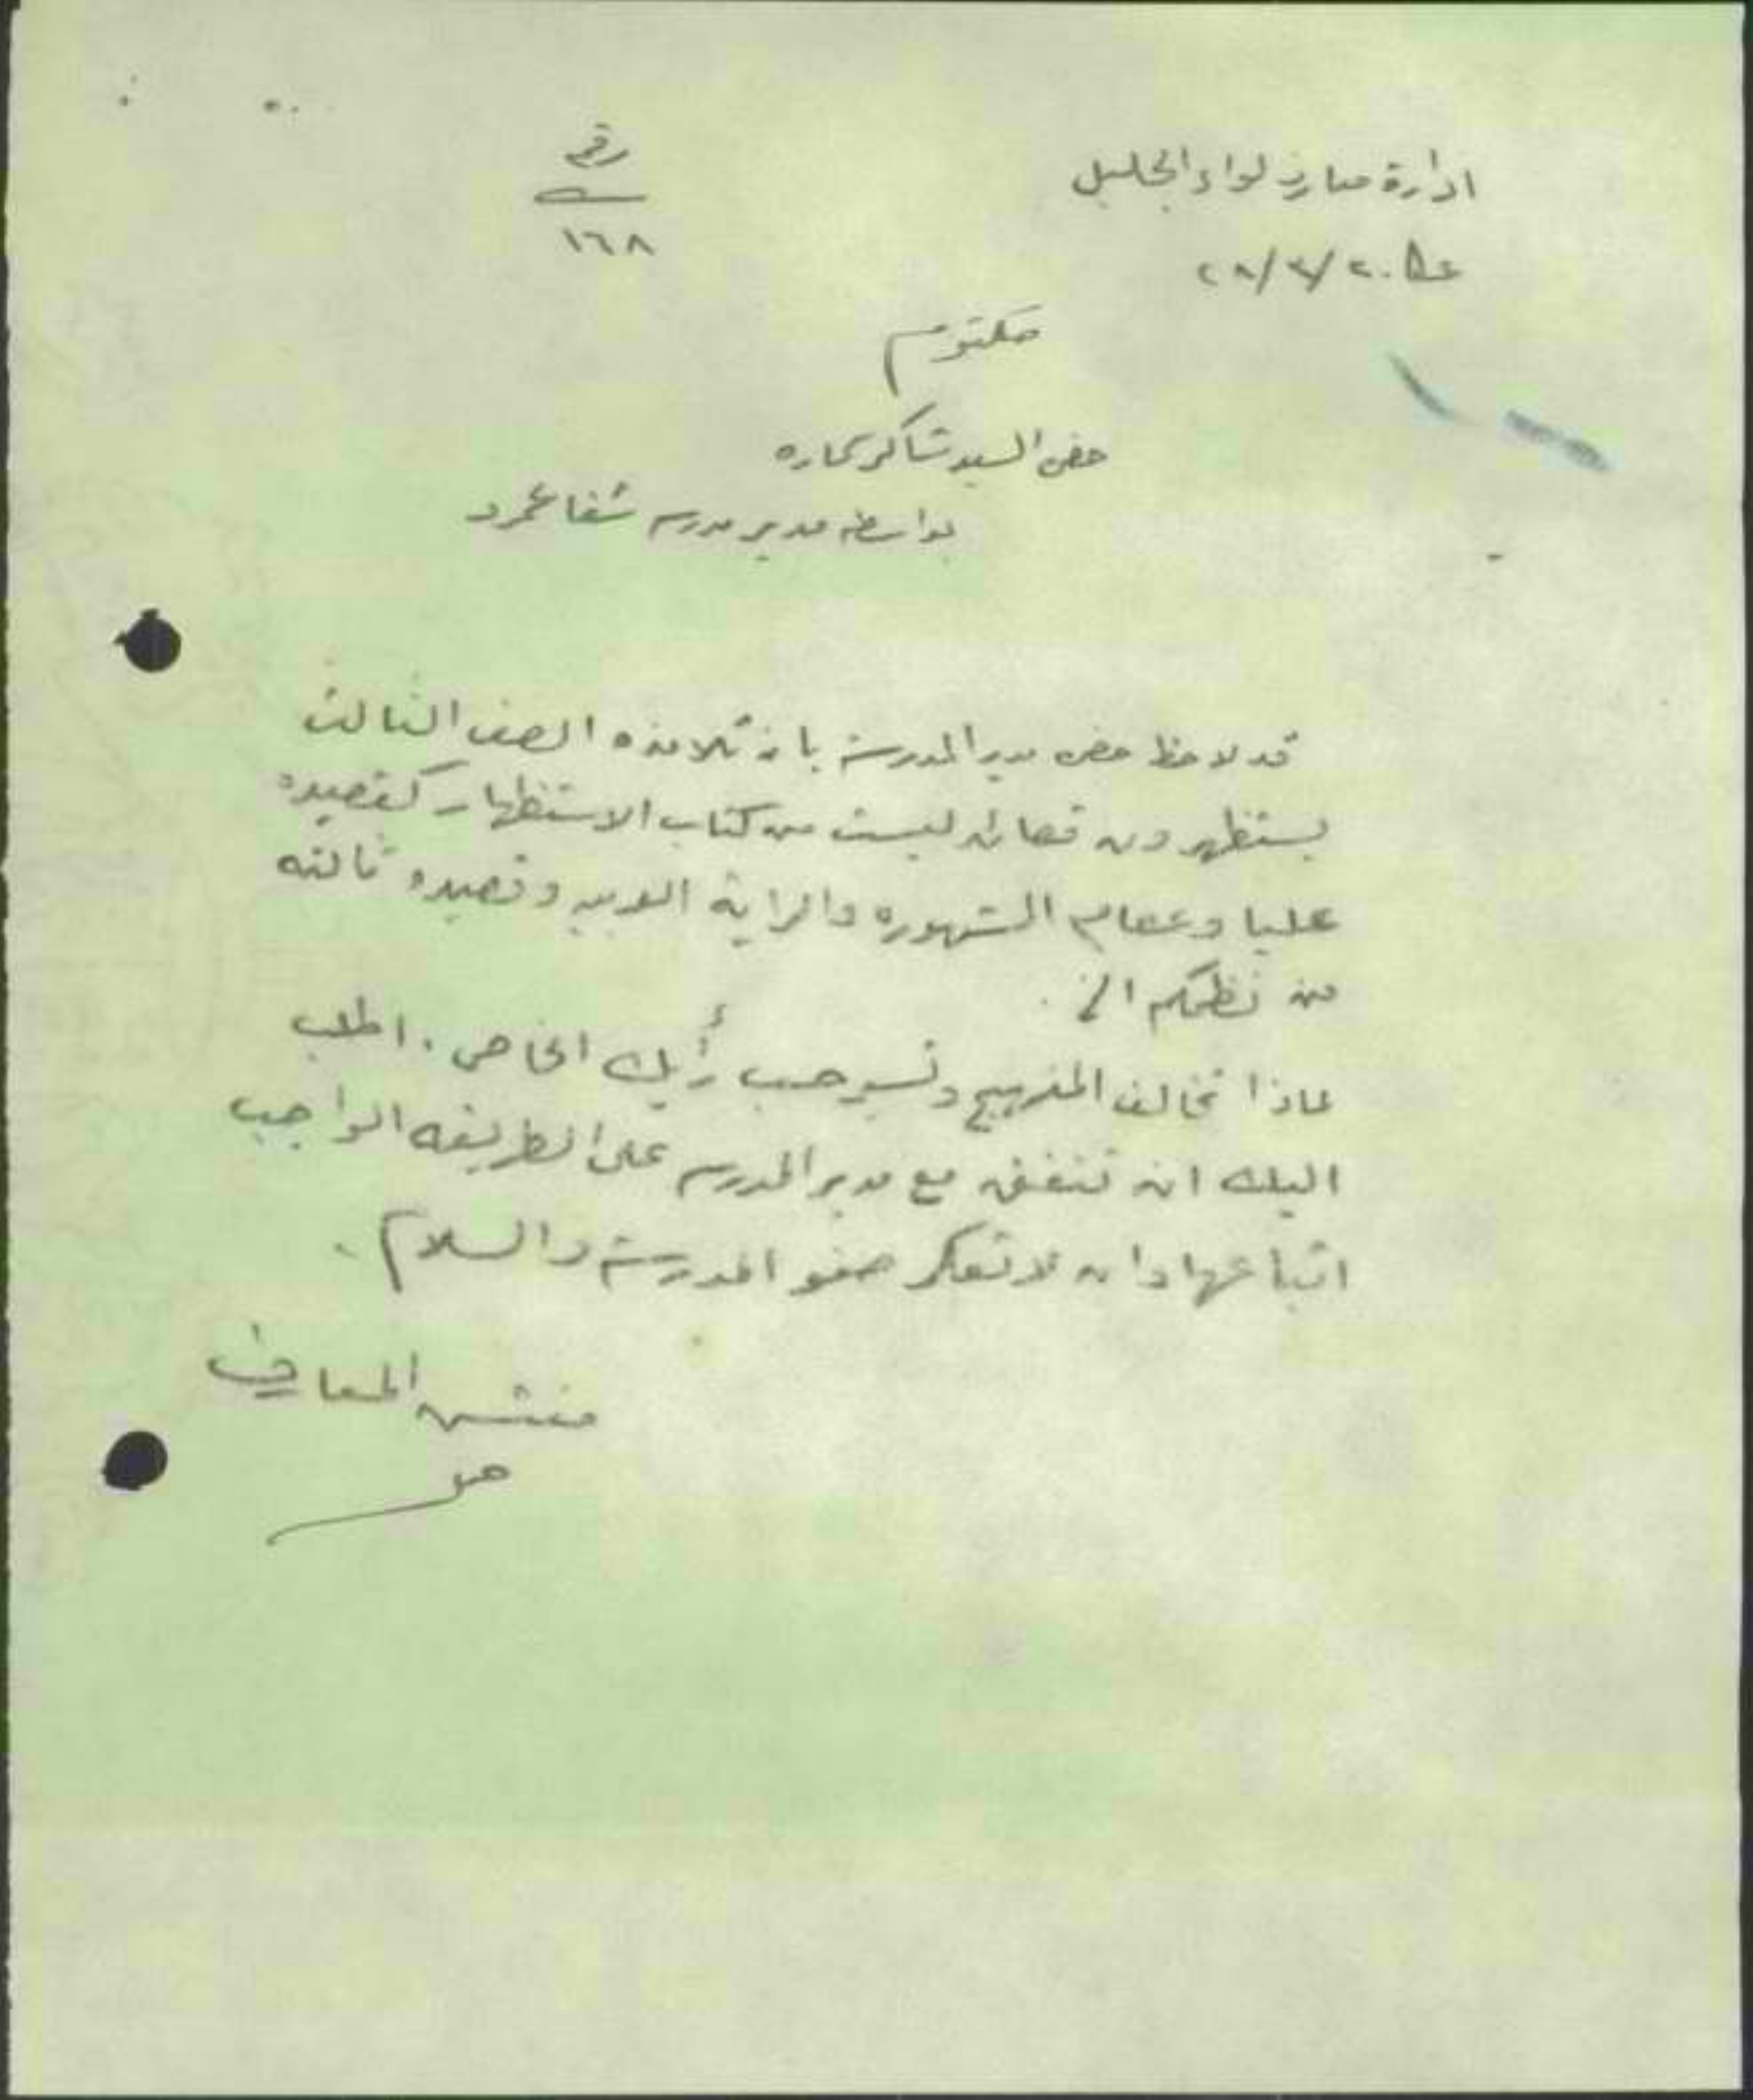 ادارة معارف لواء الجليل
رقم
١٦٨
عكا ٢٠/٣/٢٨
مكتوم
حضرة السيد شاكر
بواسطة مدير مدرسة شفاعمرو
قد لاحظ حضرة مدير المدرسة بان تلامذه الصف الثالث
يستظهرون قصائد ليست من كتاب الاستظهار كقصيدة
عليا وعصام المشهوره والراية العربيه وقصيده ثالثه
من نظمكم الخ .
لماذا تخالف المنهج وتسير حسب رأيك الخاص . اطلب
اليك ان تتفق مع مدير المدرسه على الطريقه الواجب
اتباعها وان لا تعكر صفو المدرسة والسلام .
مفتش المعارف